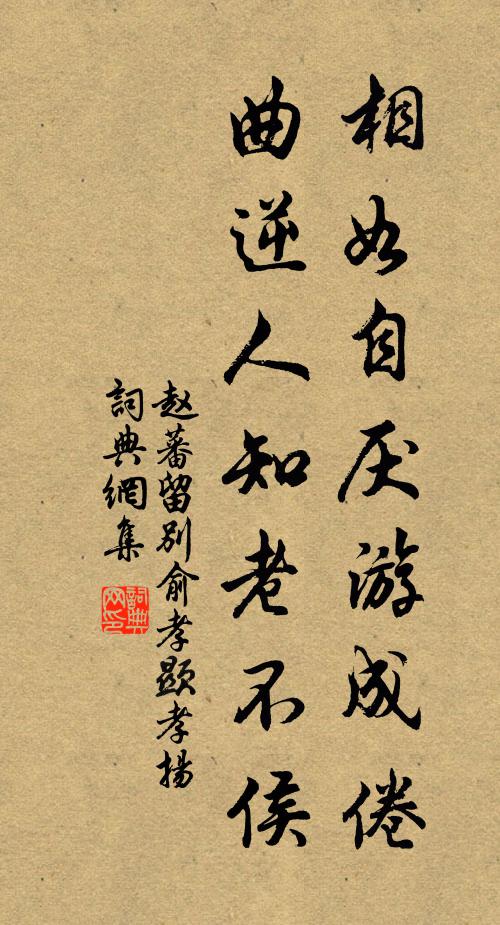 相如自厌游成倦
曲逆人知老不侯
赵蕃留别俞孝显孝揚
詞典網集
詞典网印